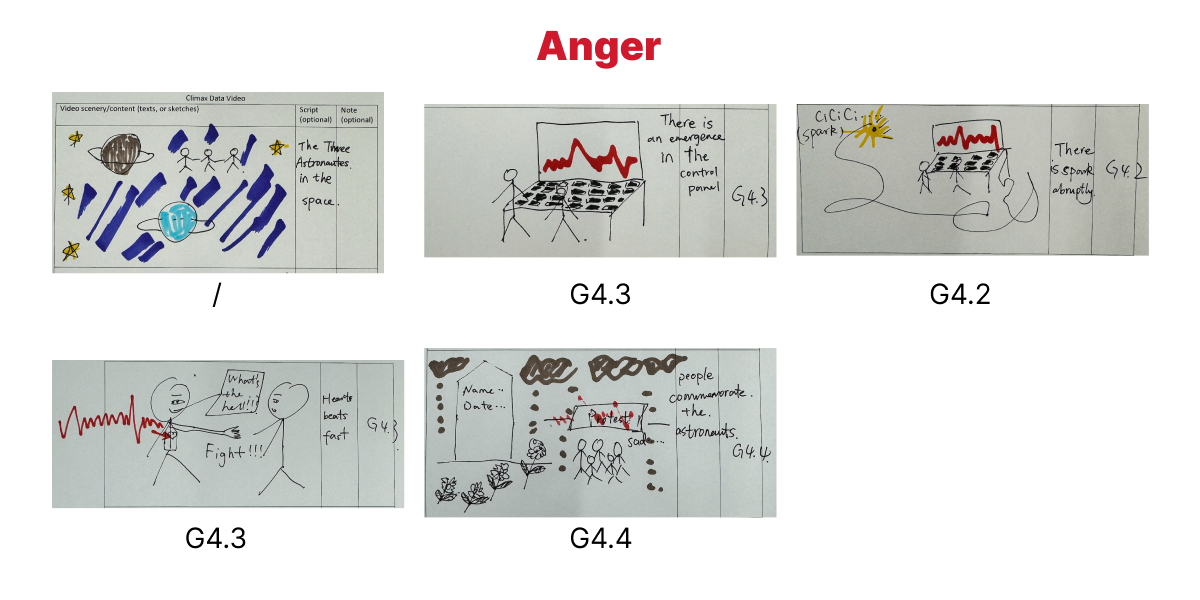 Anger
Climax Data Video
Video scenery/content (texts, or sketches)
Script
(optional)
Note
(optional)
The Three
Astronautes
in the
space.
/
There is
an emergence
in the
control
pannel
G4.3
G4.3
CiCiCi
(spark)
There
is spark
abruptly.
G4.2
G4.2
What's
the
hell!!!
Fight!!!
Hearts
beats
fast
G4.3
G4.3
Name..
Date...
Protest!
sad...
people
commemorate.
the.
astronauts.
G4.4
G4.4